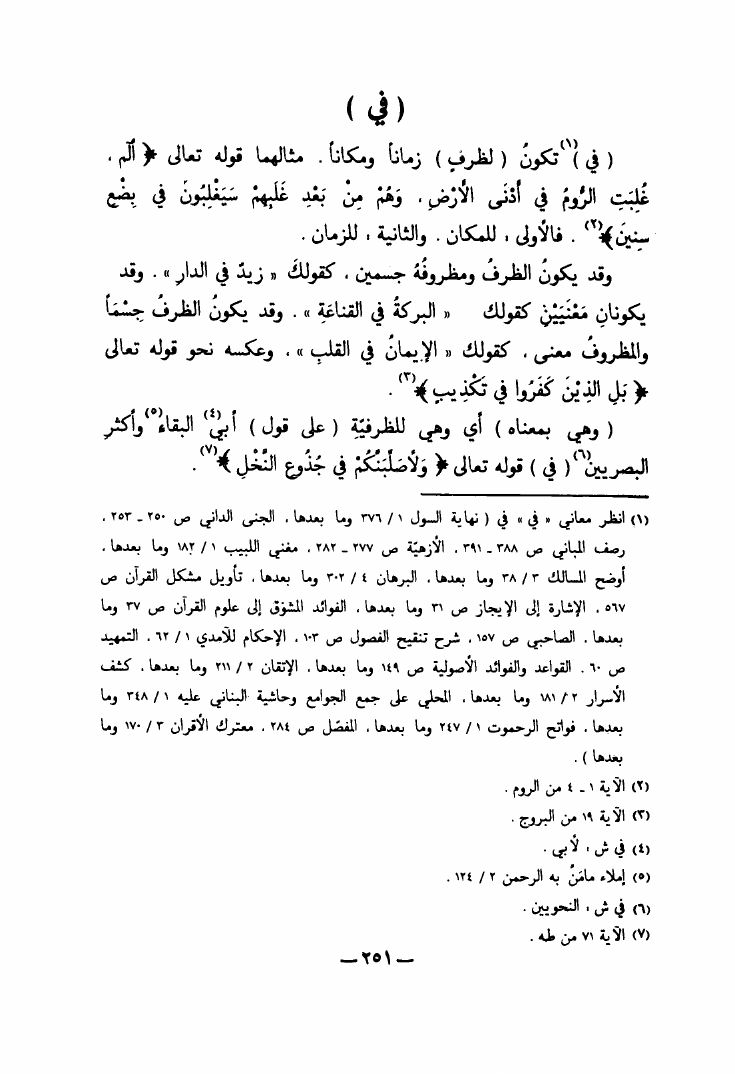 ( في )
( في )(١) تكونُ ( لظرفٍ ) زماناً ومكاناً . مثالهما قوله تعالى ﴿ ألٓم ،
غُلِبَتِ الرُّومُ في أَدْنَى الأَرْضِ ، وَهُمْ مِنْ بَعْدِ غَلَبِهِمْ سَيَغْلِبُونَ في بِضْعِ
سِنِينَ﴾(٢) . فالأولى ؛ للمكان . والثانية ؛ للزمان .
وقد يكونُ الظرفُ ومظروفُهُ جسمين ، كقولكَ « زيدٌ في الدارِ » . وقد
يكونانِ مَعْنَيَيْنِ كقولك « البركةُ في القناعَةِ » . وقد يكونُ الظرفُ جِسْمَاً
والمظروفُ معنى ، كقولك « الإيمانُ في القلبِ » ، وعكسه نحو قوله تعالى
﴿ بَلِ الذِيْنَ كَفَرُوا في تَكْذِيبٍ ﴾(٣) .
( وهي بمعناه ) أي وهي للظرفيّةِ ( على قول ) أبي(٤) البقاء(٥) وأكثرِ
البصريين(٦) ( في ) قوله تعالى ﴿ وَلَأصَلِّبَنَّكُمْ في جُذُوعِ النَّخْلِ ﴾(٧) .
(١) انظر معاني « في » في ( نهاية السول ١ / ٣٧٦ وما بعدها ، الجنى الداني ص ٢٥٠ ـ ٢٥٣ ،
رصف المباني ص ٣٨٨ ـ ٣٩١ ، الأزهيّة ص ٢٧٧ ـ ٢٨٢ ، مغني اللبيب ١ / ١٨٢ وما بعدها ،
أوضح المسالك ٣ / ٣٨ وما بعدها ، البرهان ٤ / ٣٠٢ وما بعدها ، تأويل مشكل القرآن ص
٥٦٧ ، الإشارة إلى الإيجاز ص ٣١ وما بعدها ، الفوائد المشوّق إلى علوم القرآن ص ٣٧ وما
بعدها ، الصاحبي ص ١٥٧ ، شرح تنقيح الفصول ص ١٠٣ ، الإحكام للآمدي ١ / ٦٢ ، التمهيد
ص ٦٠ ، القواعد والفوائد الأصولية ص ١٤٩ وما بعدها ، الإتقان ٢ / ٢١١ وما بعدها ، كشف
الأسرار ٢ / ١٨١ وما بعدها ، المحلي على جمع الجوامع وحاشية البناني عليه ١ / ٣٤٨ وما
بعدها ، فواتح الرحموت ١ / ٢٤٧ وما بعدها ، المفصّل ص ٢٨٤ ، معترك الأقران ٣ / ١٧٠ وما
بعدها ) .
(٢) الآية ١ ـ ٤ من الروم .
(٣) الآية ١٩ من البروج .
(٤) في ش ؛ لأبي .
(٥) إملاء مامَنَّ به الرحمن ٢ / ١٢٤ .
(٦) في ش ؛ النحويين .
(٧) الآية ٧١ من طه .
— ٢٥١ —